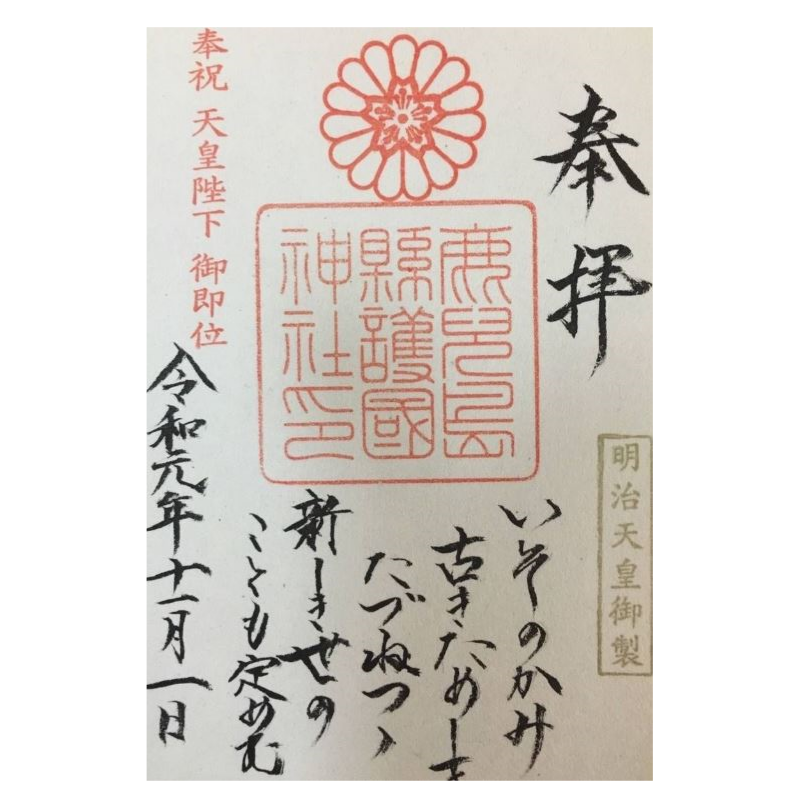 奉拝
明治天皇御製
鹿児島
縣護國
神社印
いそのかみ
古きためしを
たづねつゝ
新しき世の
ことも定めむ
奉祝 天皇陛下 御即位
令和元年十一月一日